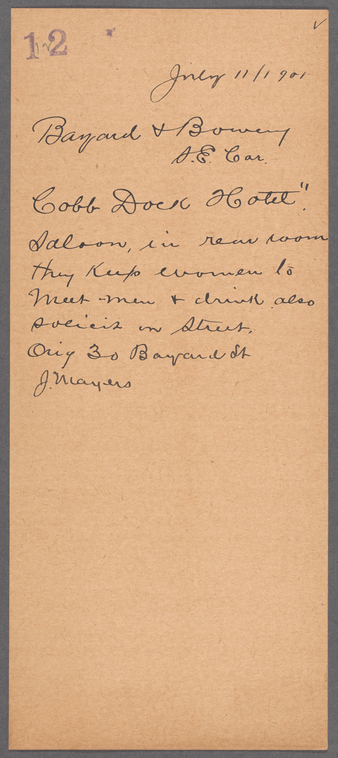 12
July 11/1901
Bayard & Bowery
S.E. Cor.
Cobb Dock Hotel".
Saloon, in rear room
they Keep women to
Meet men & drink also
solicit on Street.
Orig 30 Bayard St
J. Mayers